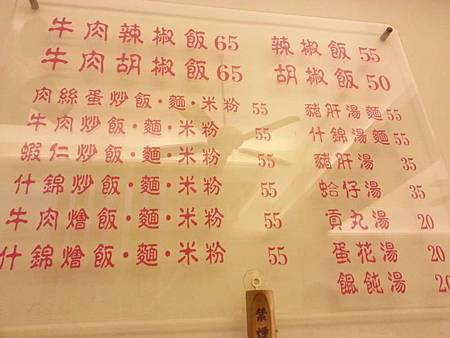 牛肉辣椒飯65
牛肉胡椒飯65
肉絲蛋炒飯·麵·米粉 55
牛肉炒飯·麵·米粉 55
蝦仁炒飯·麵·米粉 55
什錦炒飯·麵·米粉 55
牛肉燴飯·麵·米粉 55
什錦燴飯·麵·米粉 55
辣椒飯 55
胡椒飯 50
豬肝湯麵 55
什錦湯麵 55
豬肝湯 35
蛤仔湯 35
貢丸湯 20
蛋花湯 20
餛飩湯 20
禁煙